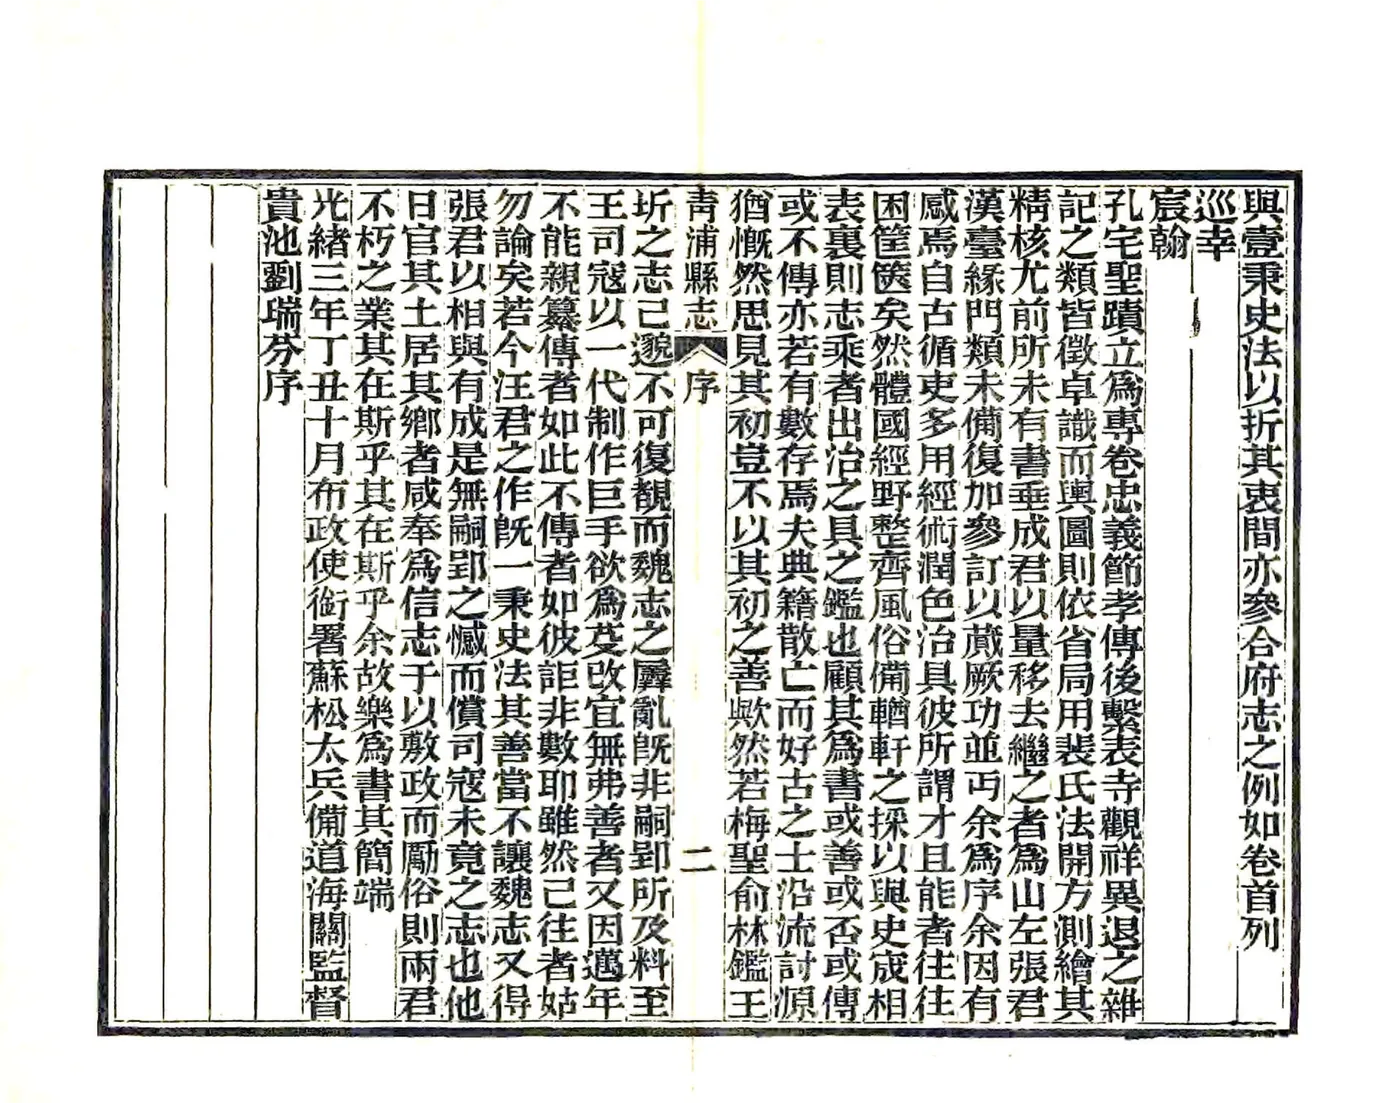 與壹秉史法以折其衷間亦參合府志之例如卷首列
巡幸
宸翰
孔宅聖蹟立爲專卷忠義節孝傳後繫表寺觀祥異退之雜
記之類皆徵卓識而輿圖則依省局用裴氏法開方測繪其
精核尤前所未有書垂成君以量移去繼之者爲山左張君
漢臺緣門類未備復加參訂以蕆厥功並丏余爲序余因有
感焉自古循吏多用經術潤色治具彼所謂才且能者往往
困筐篋矣然體國經野整齊風俗備輶軒之採以與史宬相
表裏則志乘者出治之具之鑑也顧其爲書或善或否或傳
或不傳亦若有數存焉夫典籍散亡而好古之士沿流討源
猶慨然思見其初豈不以其初之善歟然若梅聖俞林鑑王
青浦縣志 序 二
圻之志已邈不可復覩而魏志之羼亂旣非嗣郢所及料至
王司寇以一代制作巨手欲爲芟改宜無弗善者又因邁年
不能親纂傳者如此不傳者如彼詎非數耶雖然已往者姑
勿論矣若今汪君之作旣一秉史法其善當不讓魏志又得
張君以相與有成是無嗣郢之憾而償司寇未竟之志也他
日官其土居其鄉者咸奉爲信志于以敷政而勵俗則兩君
不朽之業其在斯乎其在斯乎余故樂爲書其簡端
光緒三年丁丑十月布政使銜署蘇松太兵備道海關監督
貴池劉瑞芬序